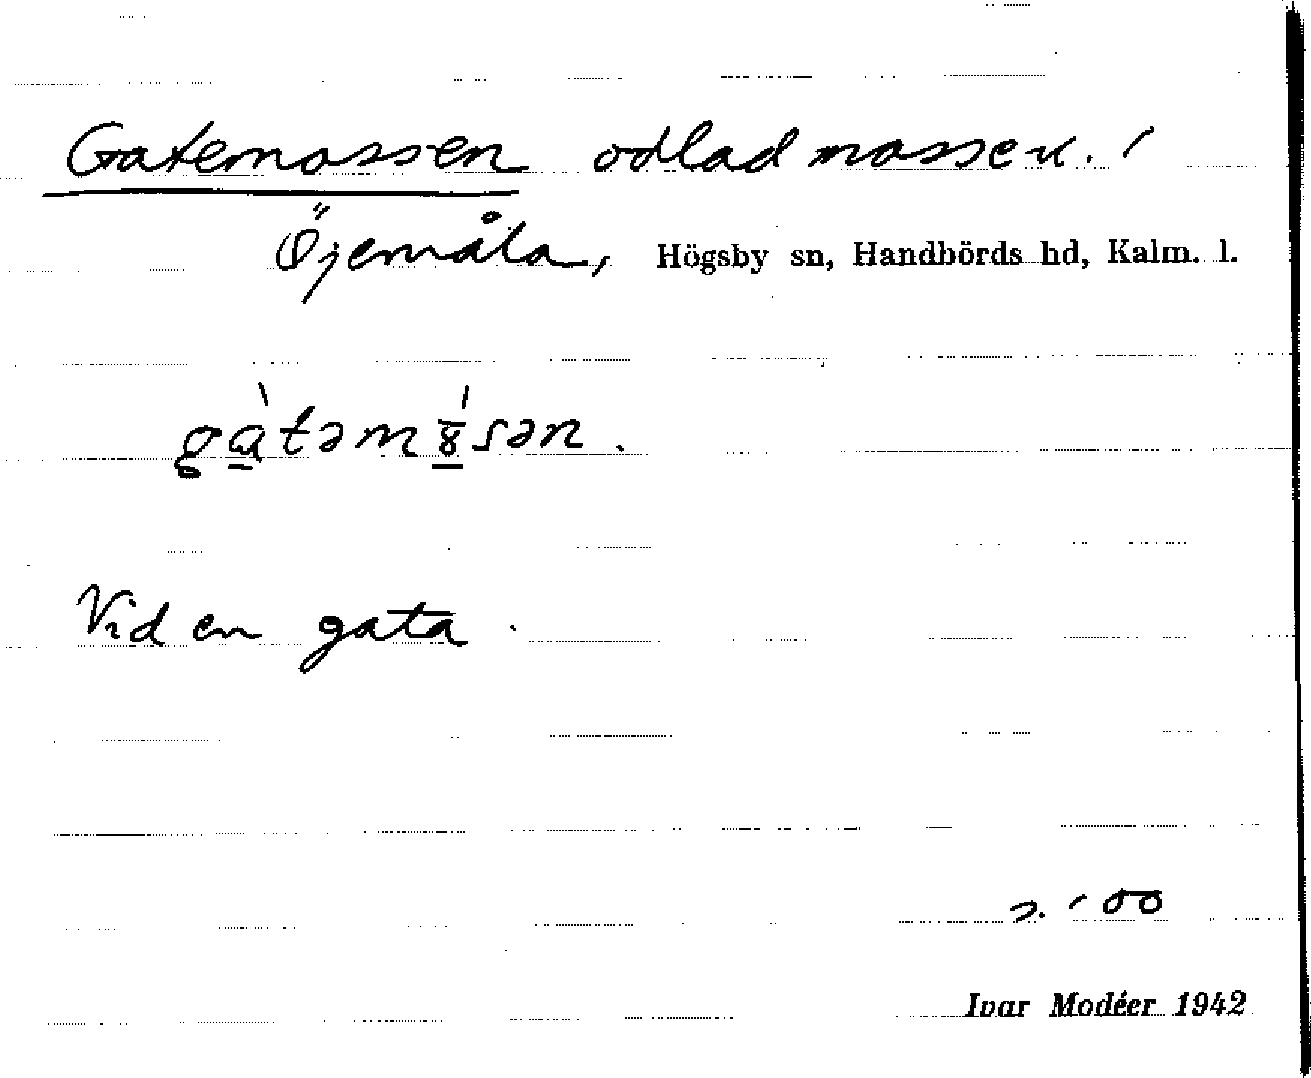 Gatemossen odlad mosse n. /
Öjemåla, Högsby sn, Handbörds hd, Kalm. l.
gàtəm8́sən.
Vid en gata.
Ivar Modéer 1942